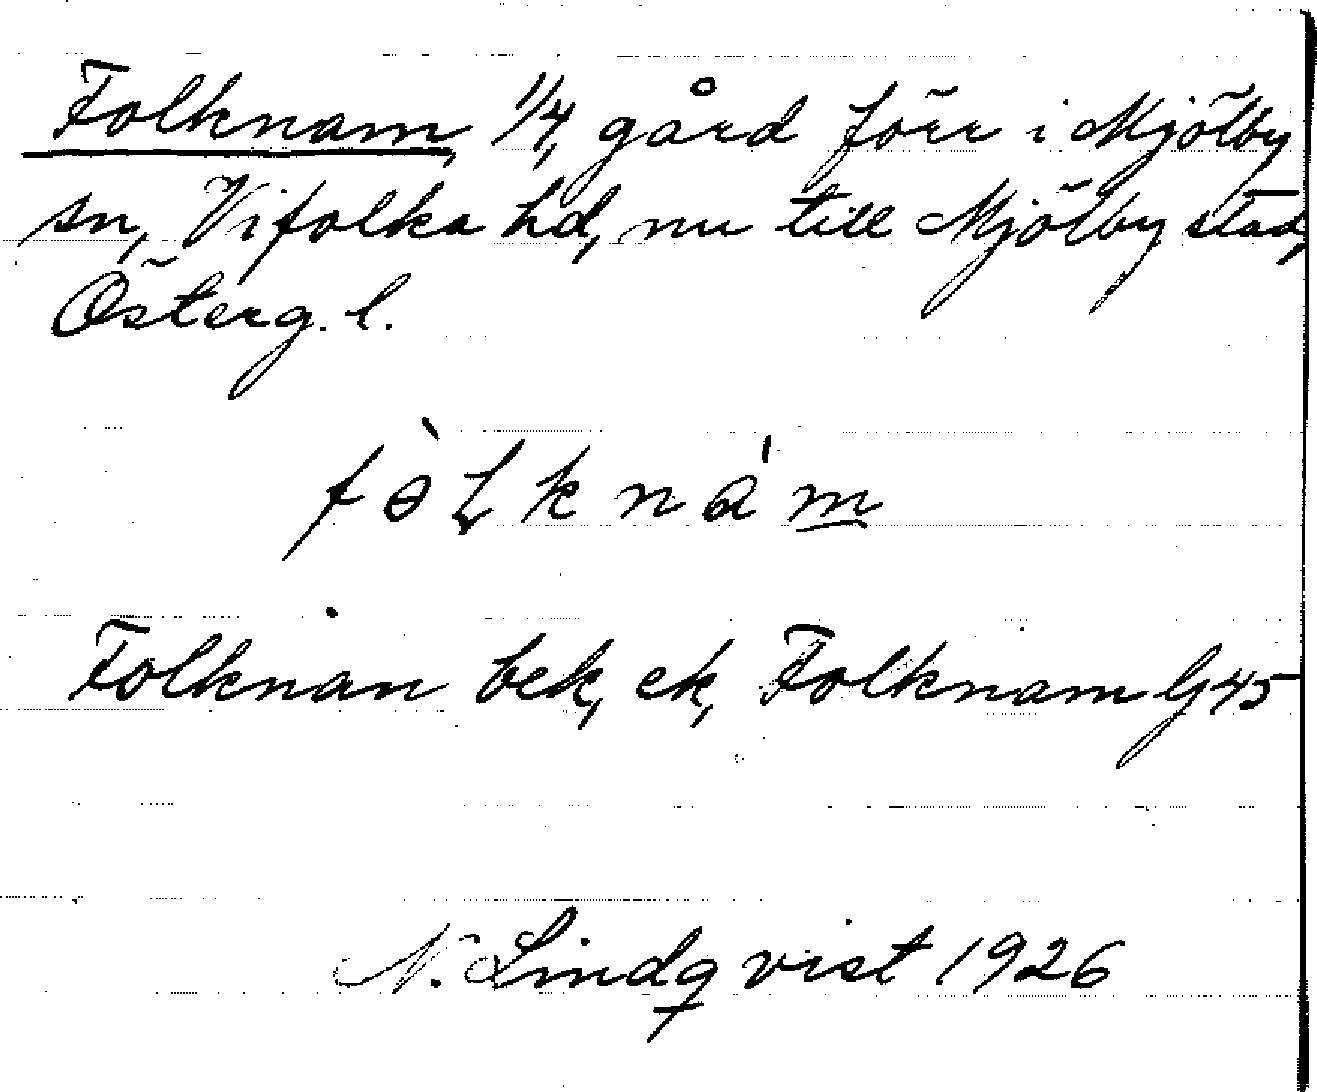 Folknam, 1/4, gård förr i Mjölby
sn, Vifolka hd, nu till Mjölby stad,
Österg. l.
fɵ̀ɫknám
Folknam bek, ek, Folknam G45
N. Lindqvist 1926